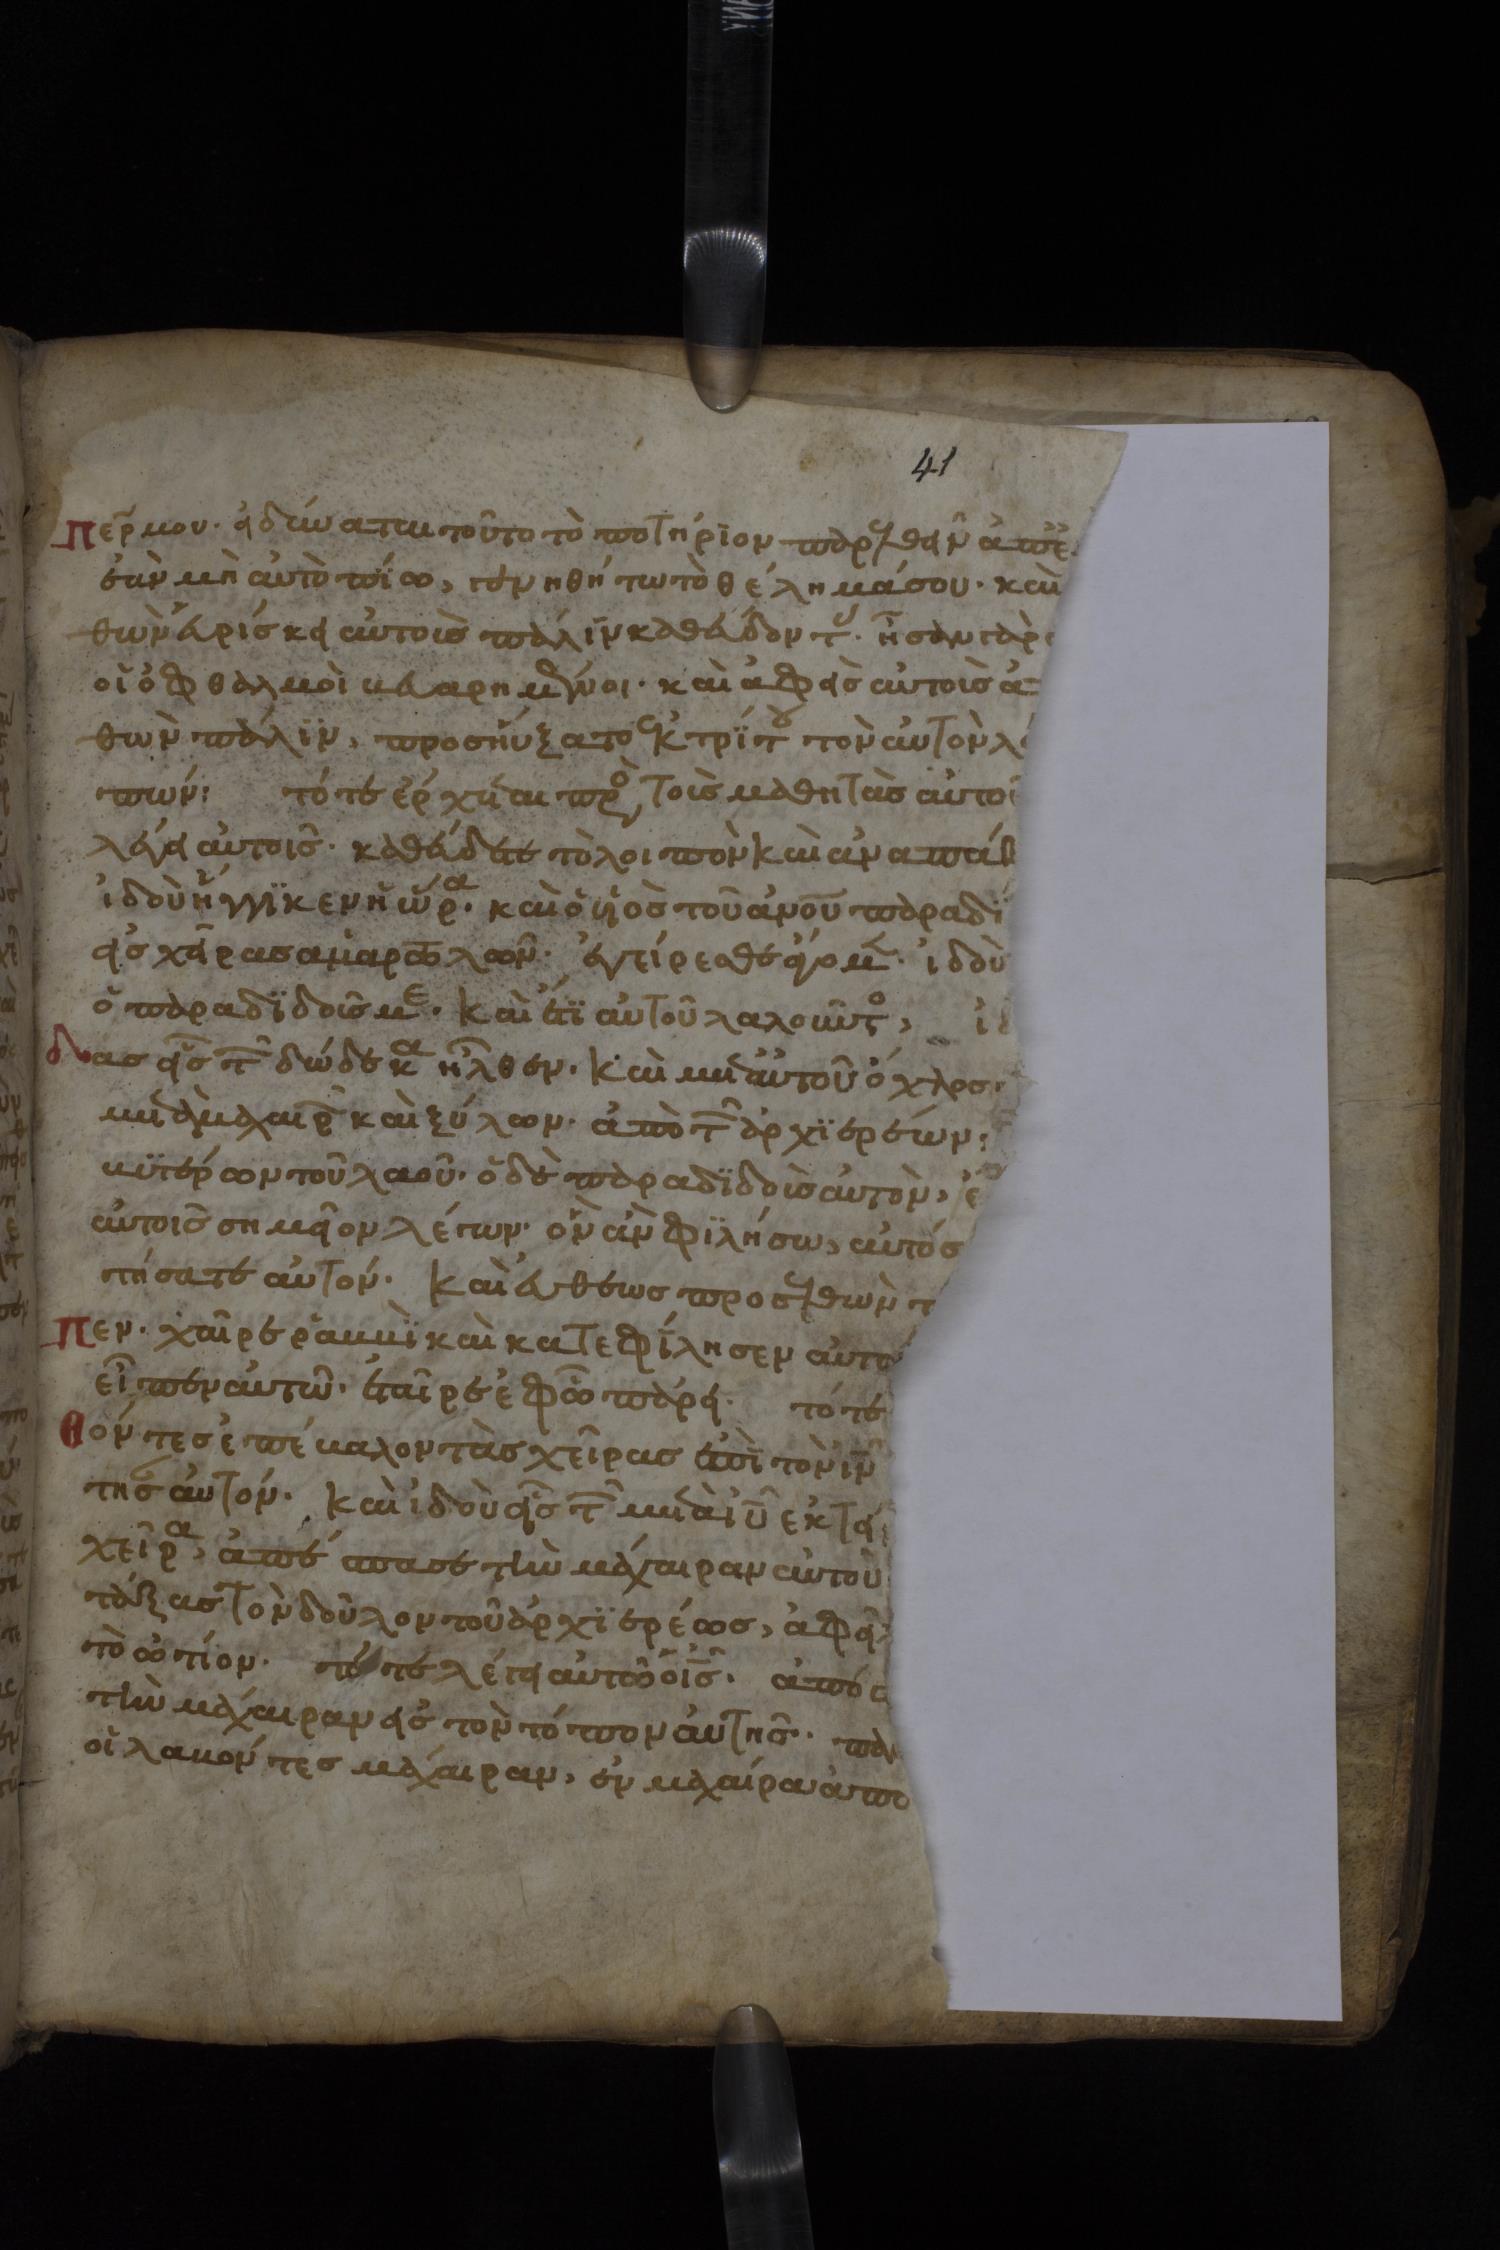 41
περ μου· εἰ δύναται τοῦτο τὸ ποτήριον παρελθεῖν ἀπ' ἐ
ἐὰν μὴ αὐτὸ πίω, γενηθήτω τὸ θέλημά σου· καὶ
θὼν εὑρίσκει αὐτοὺς πάλιν καθεύδοντ· ἦσαν γὰρ
οἱ ὀφθαλμοὶ βεβαρημένοι· καὶ ἀφεὶς αὐτοὺς ἀ
θὼν πάλϊν, προσηύξατο ἐκ τρίτ τὸν αὐτὸν λό
πών: τότε ἔρχεται πρὸ τοὺς μαθητὰς αὐτοῦ
λέγει αὐτοῖς· καθεύδετε τὸ λοιπὸν καὶ ἀναπαύ
ἰδοὺ ἤγγϊκεν ἡ ὥρα· καὶ ὁ υἱὸς τοῦ ἀνου παραδί
εἰς χεῖρας ἁμαρτωλῶν· ἐγείρεσθε ἄγομ· ἰδοὺ
ὁ παραδϊδούς με· καὶ ἔτϊ αὐτοῦ λαλοῦντο, ἰ
δας εἷς τ δώδεκα ἦλθεν· καὶ μετ αὐτοῦ ὄχλος
μετὰ μαχαιρ καὶ ξύλων· ἀπὸ τ ἀρχϊερέων
βϊτέρων τοῦ λαοῦ· ὁ δὲ παραδϊδοὺς αὐτὸν, ἔ
αὐτοῖς σημεῖον λέγων· ὃν ἂν φϊλήσω, αὐτός
τήσατε αὐτόν· καὶ εὐθέως προσελθὼν τ
πεν· χαῖρε ῥαββὶ καὶ κατεφίλησεν αὐτό
εἶπεν αὐτῶ· ἑταῖρε ἐφ ὧ πάρει· τότε
θόντες ἐπέβαλον τὰς χεῖρας ἐπὶ τὸν ιν
τησ αὐτόν· καὶ ἰδοὺ εἷς τ μετὰ ιυ ἐκτεί
χεῖρα, ἀπέσπασε τὴν μάχαιραν αὐτοῦ
τάξας τὸν δοῦλον τοῦ ἀρχϊερέως, ἀφεῖλ
τὸ ὠτίον· τότε λέγει αὐτῶ ὁ ις· ἀπό
τὴν μάχαιραν εἰς τὸν τόπον αὐτῆς· πάν
οἱ λαβόντες μάχαιραν, ἐν μαχαίρα ἀπο